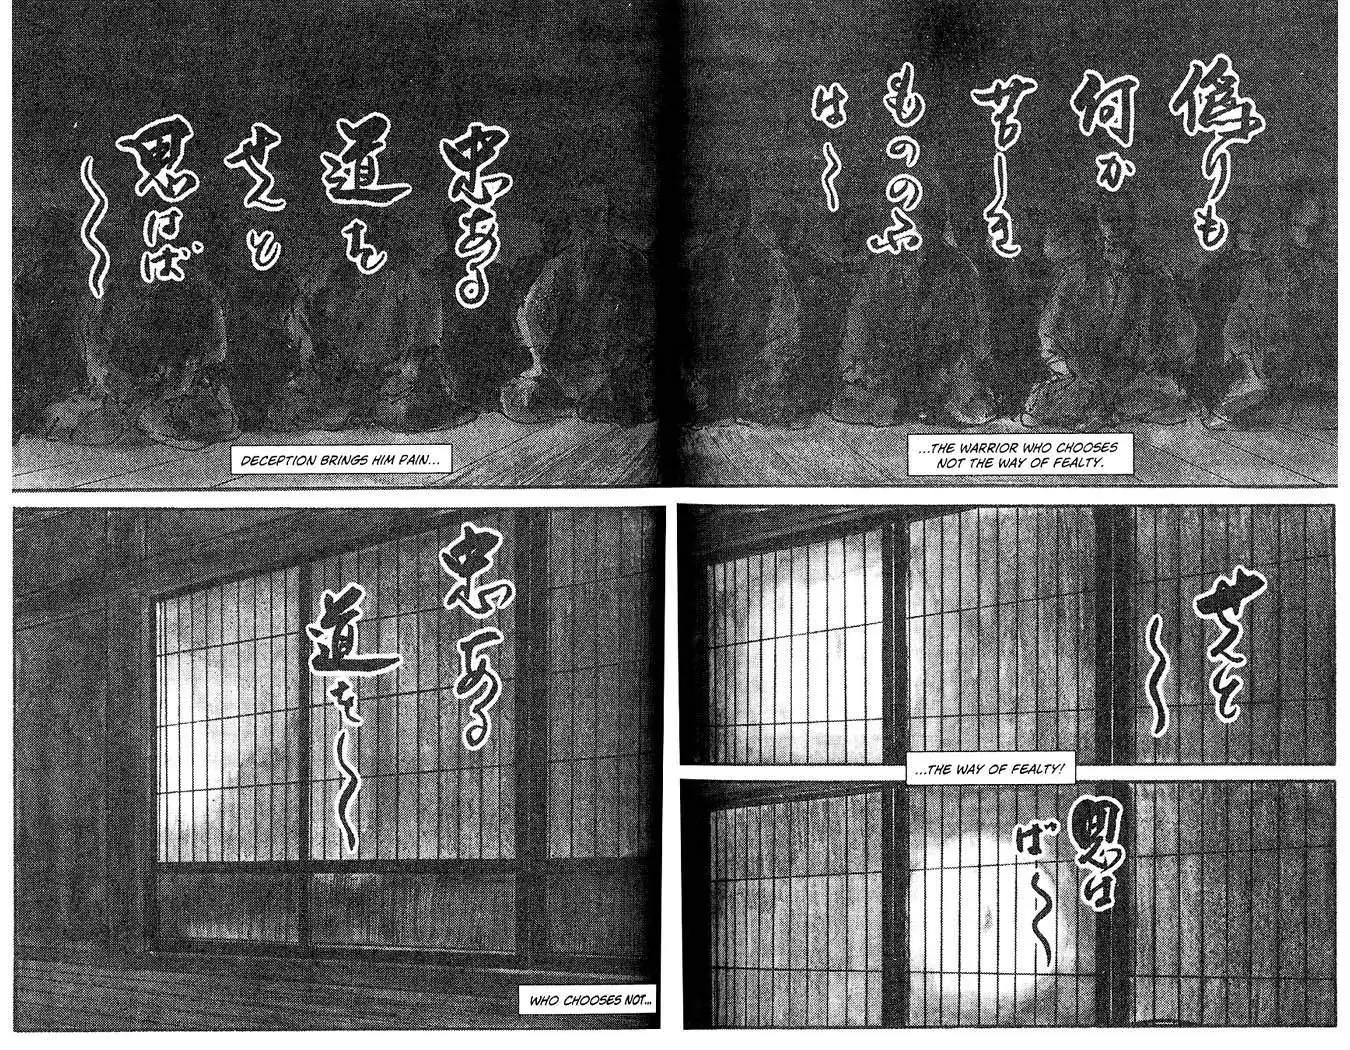 偽りも
何か
苦しき
もののふ
は〜
忠ある
道を
せんと
思はば
〜
DECEPTION BRINGS HIM PAIN...
...THE WARRIOR WHO CHOOSES
NOT THE WAY OF FEALTY.
忠ある
道を〜
WHO CHOOSES NOT...
せんと
〜
...THE WAY OF FEALTY!
思は
ば〜